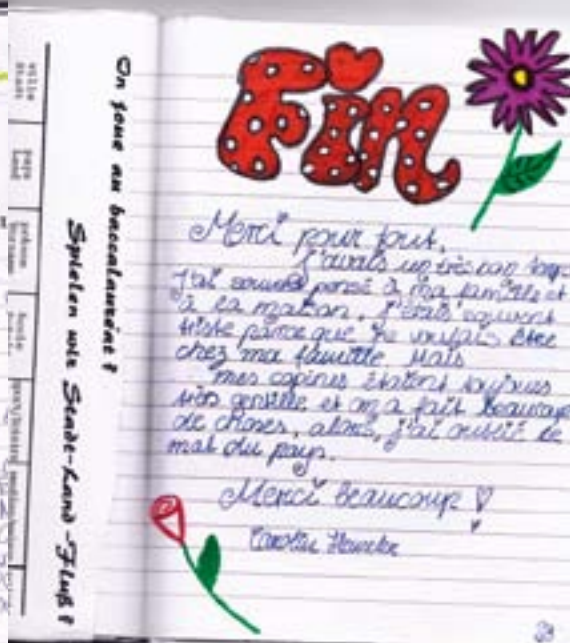 On joue au baccalauréat ?
Spielen wir Stadt-Land-Fluß ?
ville
Stadt
pays
Land
Fin
Merci pour tout,
j'avais un très bon temps
J'ai souvent pensé à ma famille et
à la maison, j'étais souvent
triste parce que je voulais être
chez ma famille Mais
mes copines étaient toujours
très gentille et on a fait beaucoup
de choses, alors, j'ai oublié le
mal du pays.
Merci beaucoup